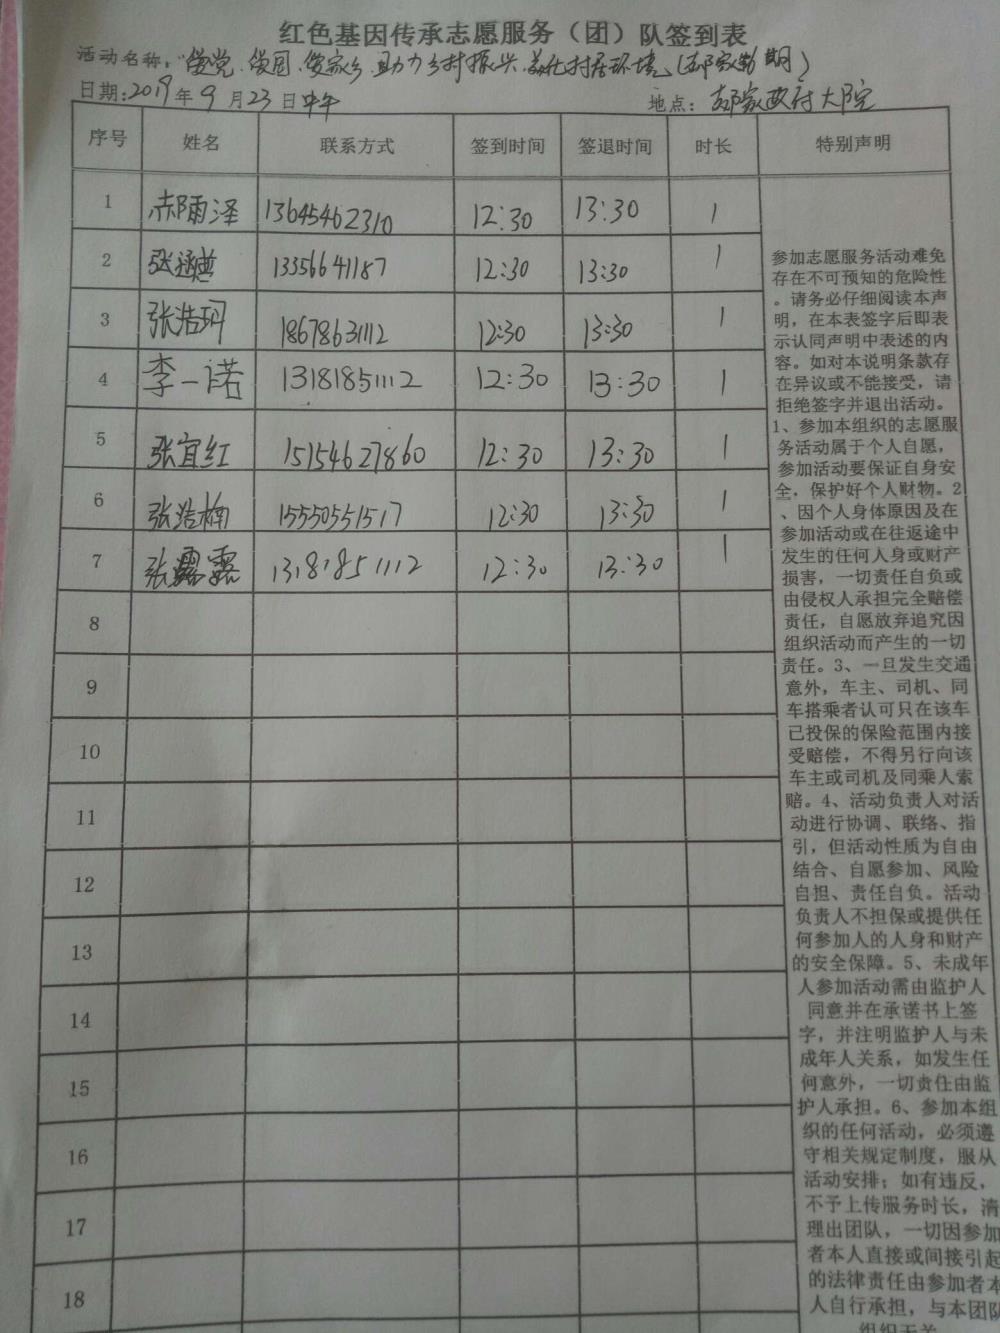 红色基因传承志愿服务（团）队签到表
活动名称："爱党、爱国、爱家乡、助力乡村振兴、美化村居环境（邵家第 期）
日期：2019年9月23日中午 地点：邵家政府大院
序号 姓名 联系方式 签到时间 签退时间 时长 特别声明
1 郝雨泽 13645462310 12:30 13:30 1
2 张 13356641187 12:30 13:30 1
3 张浩珂 18678631112 12:30 13:30 1
4 李一诺 13181851112 12:30 13:30 1
5 张宜红 15154627860 12:30 13:30 1
6 张浩楠 15550551517 12:30 13:30 1
7 张露露 13181851112 12:30 13:30 1
8
9
10
11
12
13
14
15
16
17
18
参加志愿服务活动难免
存在不可预知的危险性
。请务必仔细阅读本声
明，在本表签字后即表
示认同声明中表述的内
容。如对本说明条款存
在异议或不能接受，请
拒绝签字并退出活动。
1、参加本组织的志愿服
务活动属于个人自愿，
参加活动要保证自身安
全，保护好个人财物。2
、因个人身体原因及在
参加活动或在往返途中
发生的任何人身或财产
损害，一切责任自负或
由侵权人承担完全赔偿
责任，自愿放弃追究因
组织活动而产生的一切
责任。3、一旦发生交通
意外，车主、司机、同
车搭乘者认可只在该车
已投保的保险范围内接
受赔偿，不得另行向该
车主或司机及同乘人索
赔。4、活动负责人对活
动进行协调、联络、指
引，但活动性质为自由
结合、自愿参加、风险
自担、责任自负。活动
负责人不担保或提供任
何参加人的人身和财产
的安全保障。5、未成年
人参加活动需由监护人
同意并在承诺书上签
字，并注明监护人与未
成年人关系，如发生任
何意外，一切责任由监
护人承担。6、参加本组
织的任何活动，必须遵
守相关规定制度，服从
活动安排；如有违反，
不予上传服务时长，清
理出团队，一切因参加
者本人直接或间接引起
的法律责任由参加者本
人自行承担，与本团队
组织无关